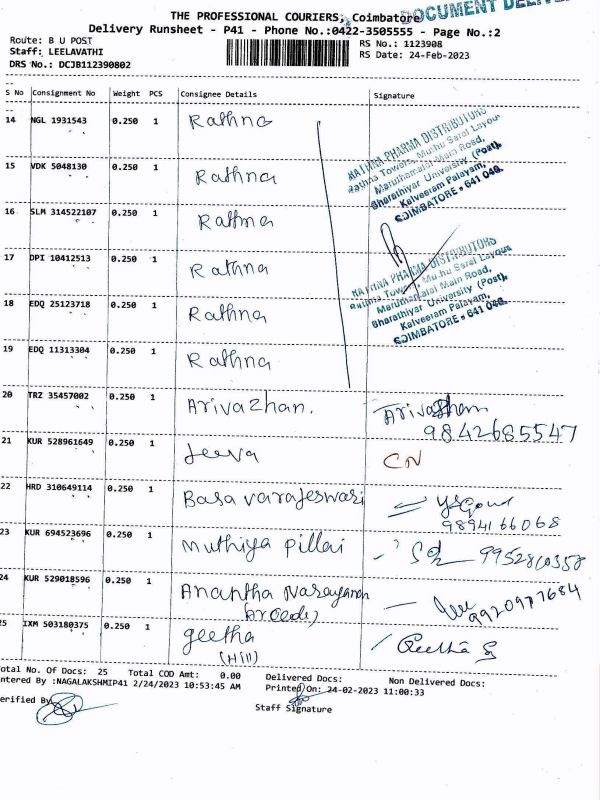 THE PROFESSIONAL COURIERS, Coimbatore
DOCUMENT
Delivery Runsheet - P41 - Phone No.:0422-3505555 - Page No.:2
Route: B U POST
Staff: LEELAVATHI
DRS No.: DCJB112390802
RS No.: 1123908
RS Date: 24-Feb-2023
S No Consignment No Weight PCS Consignee Details Signature
14 NGL 1931543 0.250 1 Rathna
15 VDK 5048130 0.250 1 Rathna
16 SLM 314522107 0.250 1 Rathna
17 DPI 10412513 0.250 1 Rathna
18 EDQ 25123718 0.250 1 Rathna
19 EDQ 11313304 0.250 1 Rathna
RATHNA PHARMA DISTRIBUTORS
Rathna Towers, Muthu Saral Layout
Maruthamalai Main Road,
Bharathiyar University (Post),
Kalveeram Palayam,
COIMBATORE - 641 046.
RATHNA PHARMA DISTRIBUTORS
Rathna Towers, Muthu Saral Layout
Maruthamalai Main Road,
Bharathiyar University (Post),
Kalveeram Palayam,
COIMBATORE - 641 046.
20 TRZ 35457002 0.250 1 Arivazhan. Arivazhan
9842685547
21 KUR 528961649 0.250 1 Jeeva CN
22 HRD 310649114 0.250 1 Basavarajeswari
9894166068
23 KUR 694523696 0.250 1 Muthiya Pillai
24 KUR 529018596 0.250 1 Anantha Narayanan
9920977684
25 IXM 503180375 0.250 1 geetha Geetha S
(Hill)
Total No. Of Docs: 25 Total COD Amt: 0.00 Delivered Docs: Non Delivered Docs:
Entered By :NAGALAKSHMIP41 2/24/2023 10:53:45 AM Printed On: 24-02-2023 11:00:33
Verified By
Staff Signature